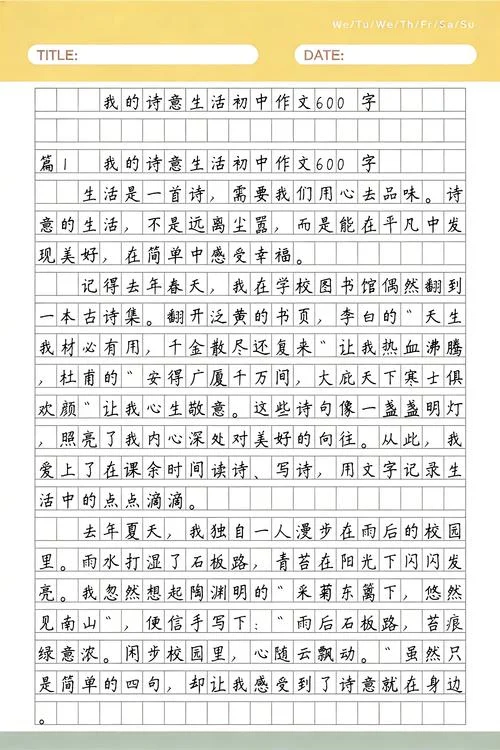 We/Tu/We/Th/Fr/Sa/Su
TITLE:
DATE:
我的诗意生活初中作文600 字
篇1 我的诗意生活初中作文600 字
生活是一首诗，需要我们用心去品味。诗
意的生活，不是远离尘嚣，而是能在平凡中发
现美好，在简单中感受幸福。
记得去年春天，我在学校图书馆偶然翻到
一本古诗集。翻开泛黄的书页，李白的"天生
我材必有用，千金散尽还复来"让我热血沸腾
，杜甫的"安得广厦千万间，大庇天下寒士俱
欢颜"让我心生敬意。这些诗句像一盏盏明灯
，照亮了我内心深处对美好的向往。从此，我
爱上了在课余时间读诗、写诗，用文字记录生
活中的点点滴滴。
去年夏天，我独自一人漫步在雨后的校园
里。雨水打湿了石板路，青苔在阳光下闪闪发
亮。我忽然想起陶渊明的"采菊东篱下，悠然
见南山"，便信手写下："雨后石板路，苔痕
绿意浓。闲步校园里，心随云飘动。"虽然只
是简单的四句，却让我感受到了诗意就在身边
。